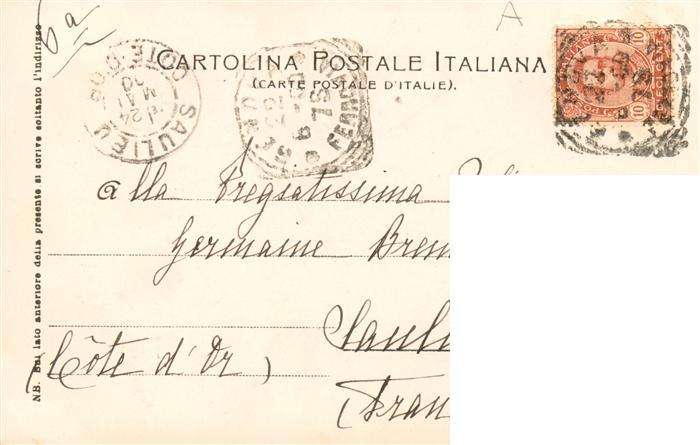 6a
A
CARTOLINA POSTALE ITALIANA
(CARTE POSTALE D'ITALIE).
SAULIEU
COTE-D'OR
24
MAI
FERRARA
10 10
alla Pregiatissima
Germaine
Saul
(Côte d'Or)
(Fran
NB. Sul lato anteriore della presente si scrive soltanto l'indirizzo